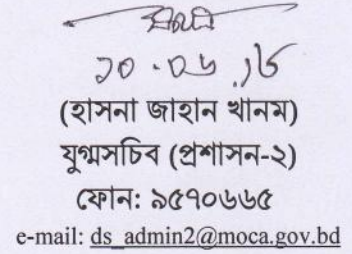 (হাসনা জাহান খানম)
যুগ্মসচিব (প্রশাসন-২)
ফোন: ৯৫৭০৬৬৫
e-mail: ds_admin2@moca.gov.bd